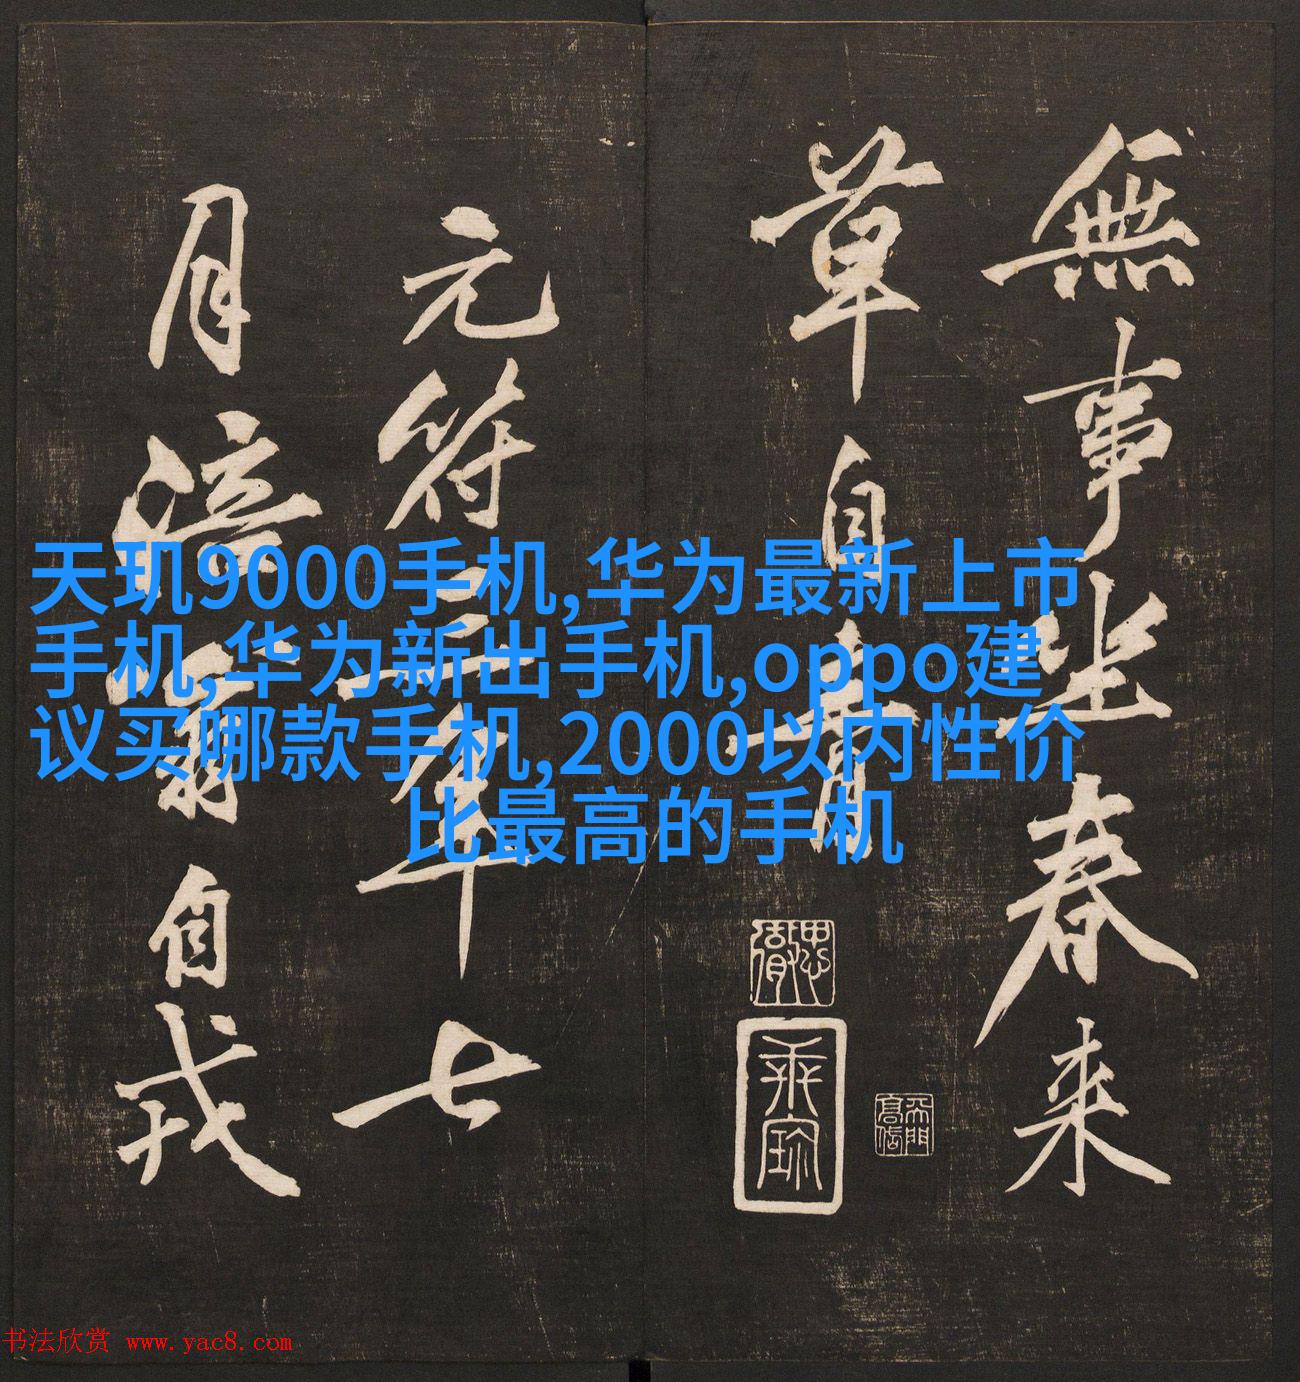 無事坐春来
草自青
元符三年七
月涪翁自戎
天玑9000手机,华为最新上市
手机,华为新出手机,oppo建
议买哪款手机,2000以内性价
比最高的手机
书法欣赏 www.yac8.com